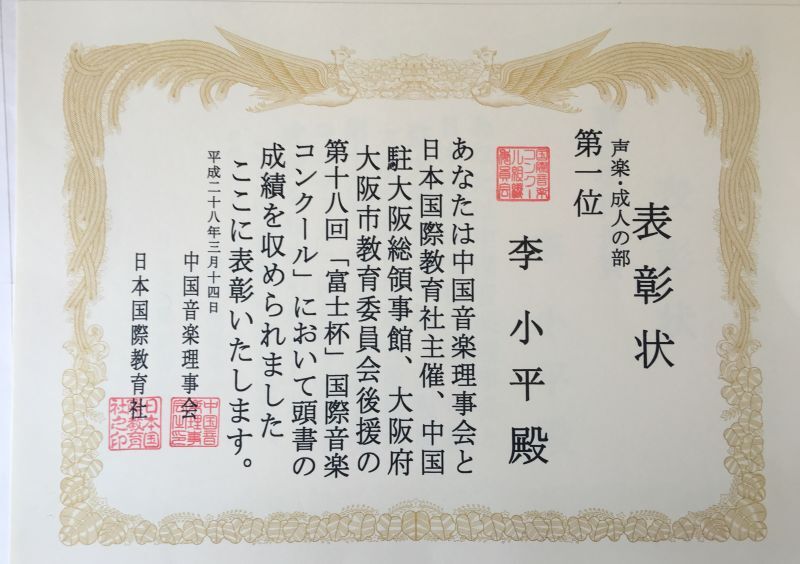 表彰状
声楽・成人の部
第一位
国際音楽コンクール組織委員会
李小平殿
あなたは中国音楽理事会と
日本国際教育社主催、中国
駐大阪総領事館、大阪府
大阪市教育委員会後援の
第十八回「富士杯」国際音楽
コンクール」において頭書の
成績を収められました
ここに表彰いたします。
平成二十八年三月十四日
中国音楽理事会
日本国際教育社
日本国際教育社之印